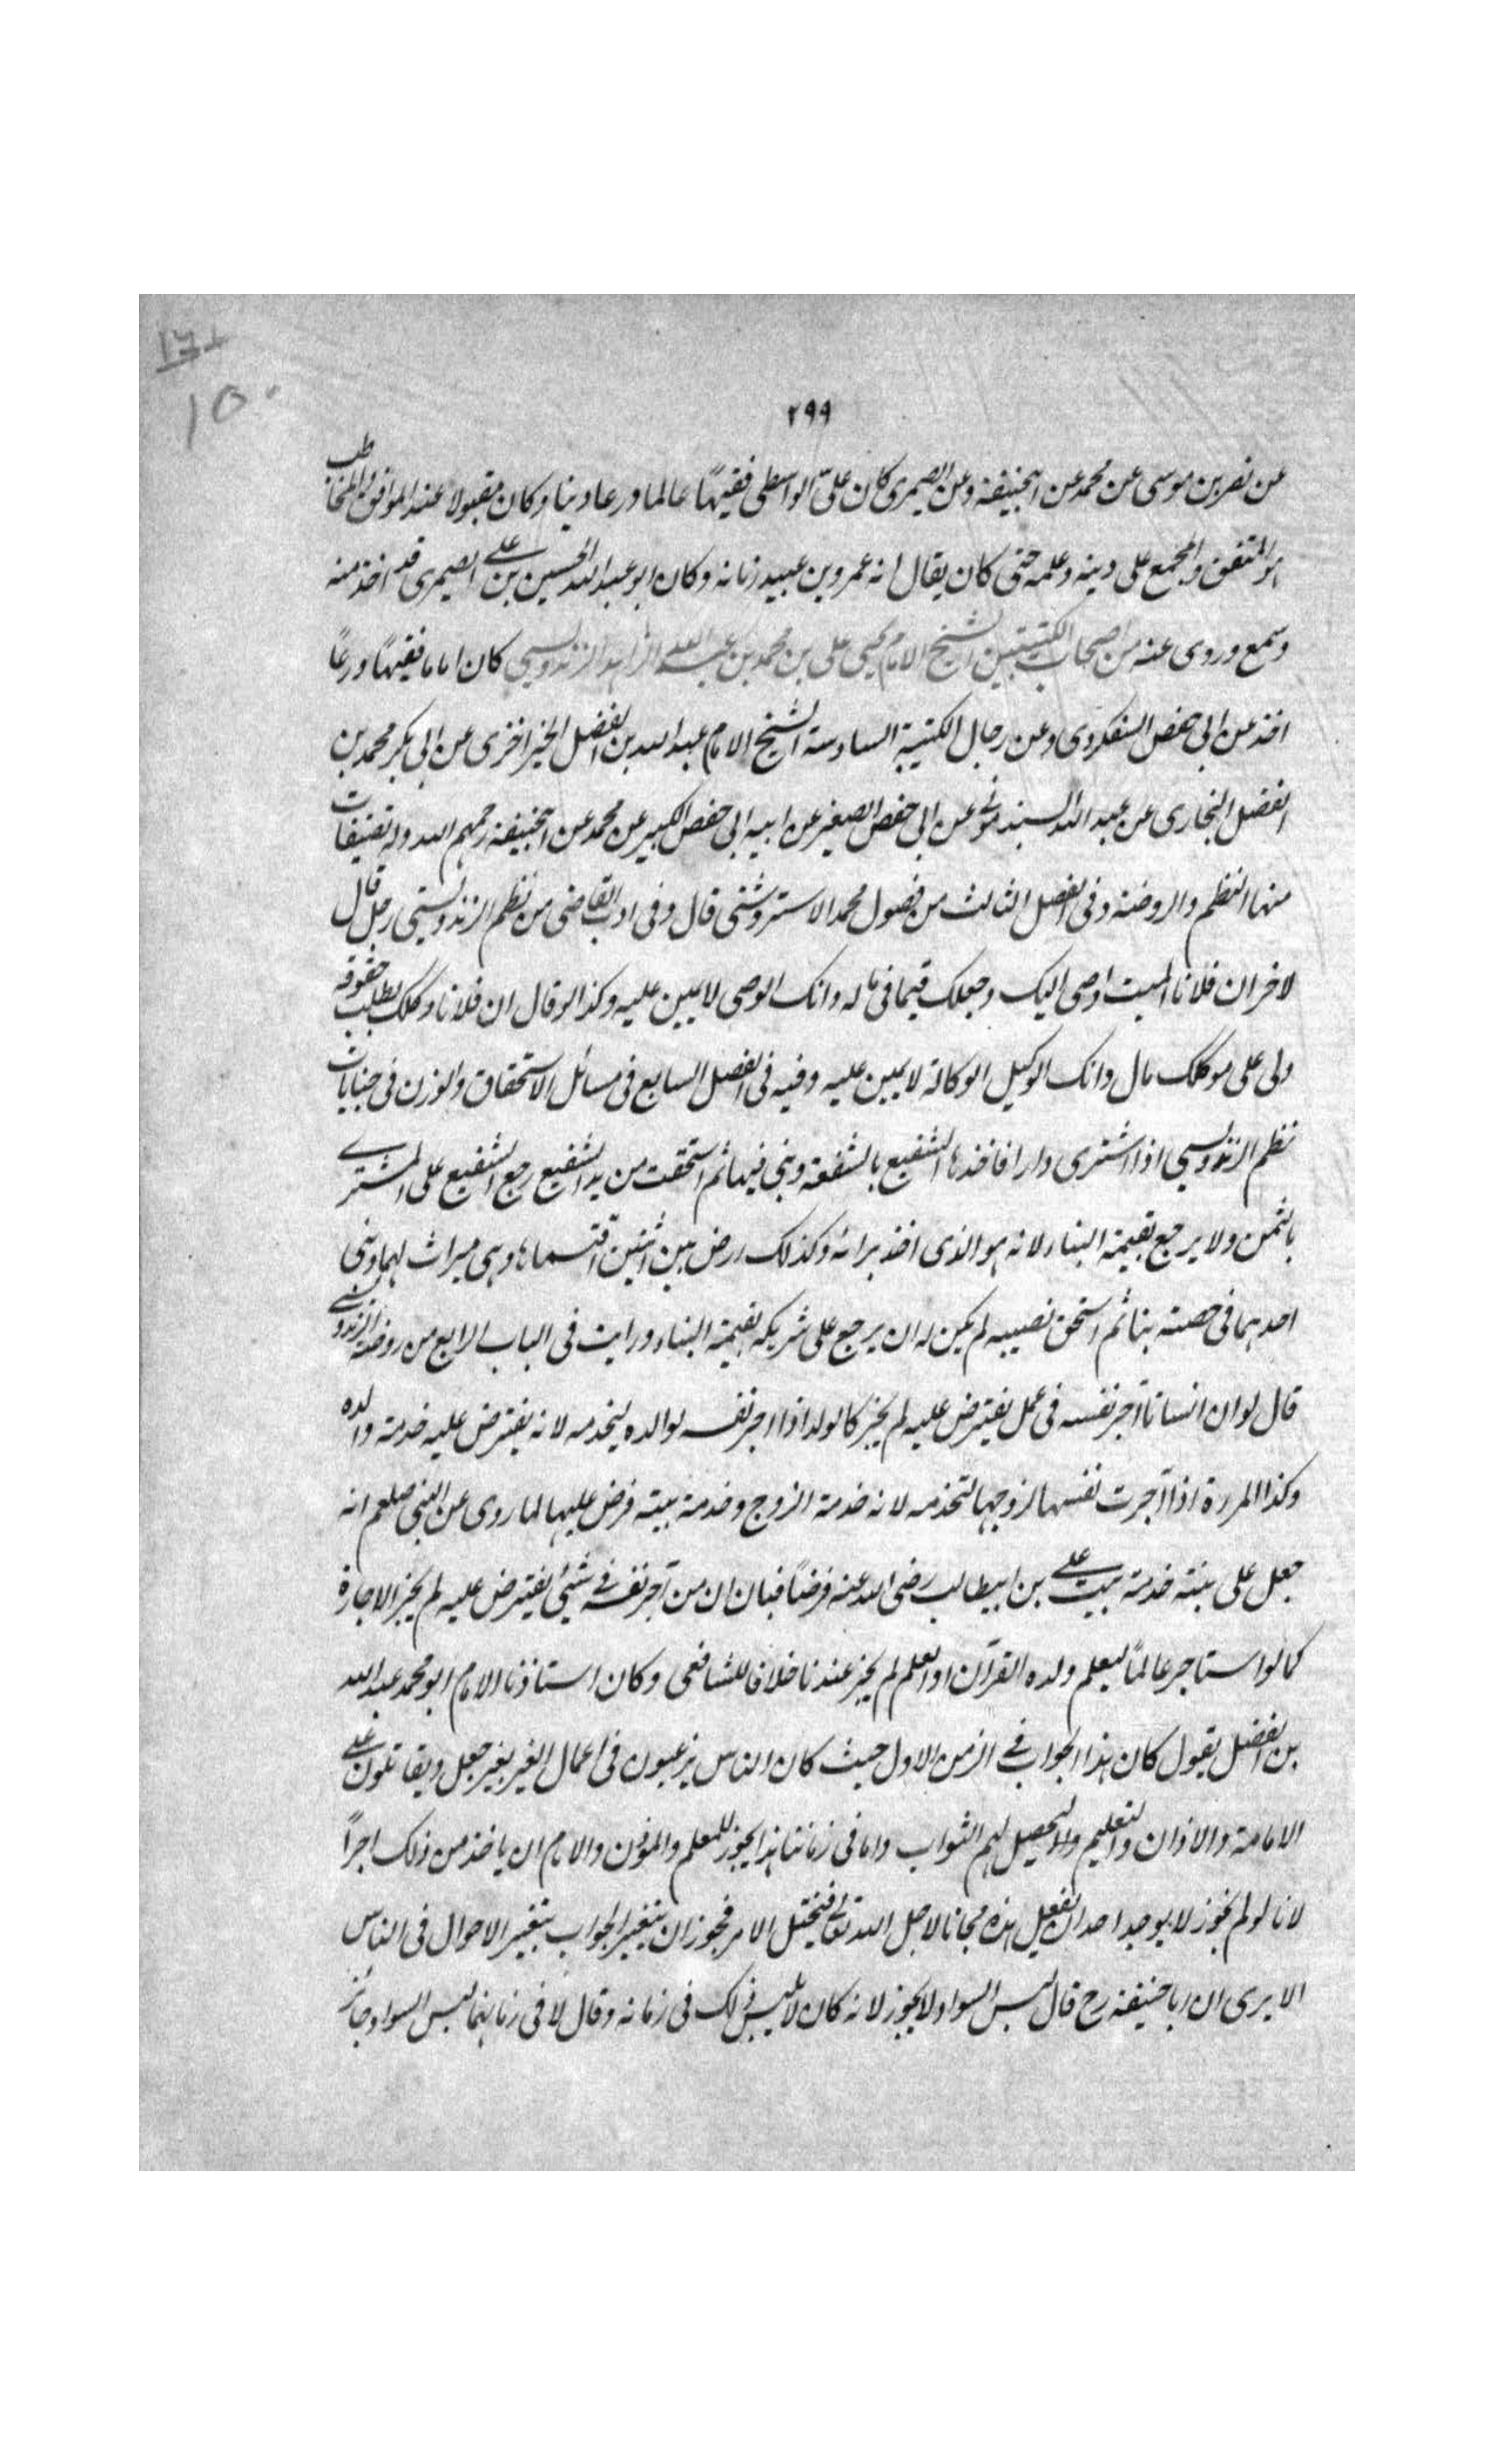 ١٥٠
٢٩٩
عن نصر بن موسى عن محمد عن ابيحنيفة وعن الصيمرى كان على الواسطى فقيهًا عالما ورعا دينا وكان مقبولا عند الموافق والمخاطب
هو المتفق والمجمع على دينه وعلمه حتى كان يقال انه عمرو بن عبيد زمانه وكان ابو عبد الله الحسين بن على الصيمرى قد اخذ منه
وسمع وروى عنه من اصحاب الكتيبتين الشيخ الامام يحيى على بن محمد بن عبد الله الزاهد الزندويسى كان اماما فقيهًا ورعًا
اخذ عن ابى حفص السفكردى وعن رجال الكتيبة السادسة الشيخ الامام عبد الله بن الفضل الخيزاخزى عن ابى بكر محمد بن
الفضل البخارى عن عبد الله السبذمونى عن ابى حفص الصغير عن ابيه ابى حفص الكبير عن محمد عن ابيحنيفة رحمهم الله وله تصنيفات
منها النظم والروضة وفى الفصل الثالث من فصول محمد الاستروشنى قال وفى ادب القاضى من نظم الزندويستى رجل قال
لاخر ان فلانا الميت اوصى اليك وجعلك قيما فى ماله وانك الوصى لا يمين عليه وكذا لو قال ان فلانا وكلك بطلب حقوقه
ولى على موكلك مال وانك الوكيل الوكالة لا يمين عليه وفيه فى الفصل السابع فى مسائل الاستحقاق والوزن فى جنايات
نظم الزندويسى اذا اشترى دارا فاخذها الشفيع بالشفعة وبنى فيها ثم استحقت من يد الشفيع رجع الشفيع على المشترى
بالثمن ولا يرجع بقيمة البناء لانه هو الذى اخذ برائه وكذلك ارض بين اثنين اقتسماها وهى ميراث لهما وبنى
احدهما فى حصته بنا ثم استحق نصيبه لم يكن له ان يرجع على شريكه بقيمة البناء ورايت فى الباب الرابع من روضة الزندويسى
قال لو ان انسانا آجر نفسه فى عمل يفترض عليه لم يجز كالولد اذا اجر نفسه لوالده ليخدمه لانه يفترض عليه خدمة والده
وكذا المرءة اذا آجرت نفسها لزوجها لتخدمه لانه خدمة الزوج وخدمة بيته فرض عليها لما روى عن النبى صلعم انه
جعل على بنته خدمة بيت على بن ابيطالب رضى الله عنه فرضًا فبان ان من آجر نفسه فى شئ يفترض عليه لم يجز الاجارة
كما لو استاجر عالمًا ليعلم ولده القرآن او العلم لم يجز عندنا خلافا للشافعى وكان استاذنا الامام ابو محمد عبد الله
بن الفضل يقول كان هذا الجواب فى الزمن الاول حيث كان الناس يرغبون فى اعمال الخير بغير جعل ويقاتلون على
الامامة والاذان والتعليم والتحصيل لهم الثواب واما فى زماننا هذا يجوز للمعلم والمؤذن والامام ان ياخذ من ذلك اجرًا
لانا لو لم نجوز لا يوجد احد ان يفعل هذه مجانا لاجل الله تعالى فيختل الامر فجوز ان يتغير الجواب بتغير الاحوال فى الناس
الا يرى ان ابا حنيفة رح قال لبس السواد لا يجوز لانه كان لا يلبس ذلك فى زمانه وقال لا فى زمانهما لبس السواد جائز